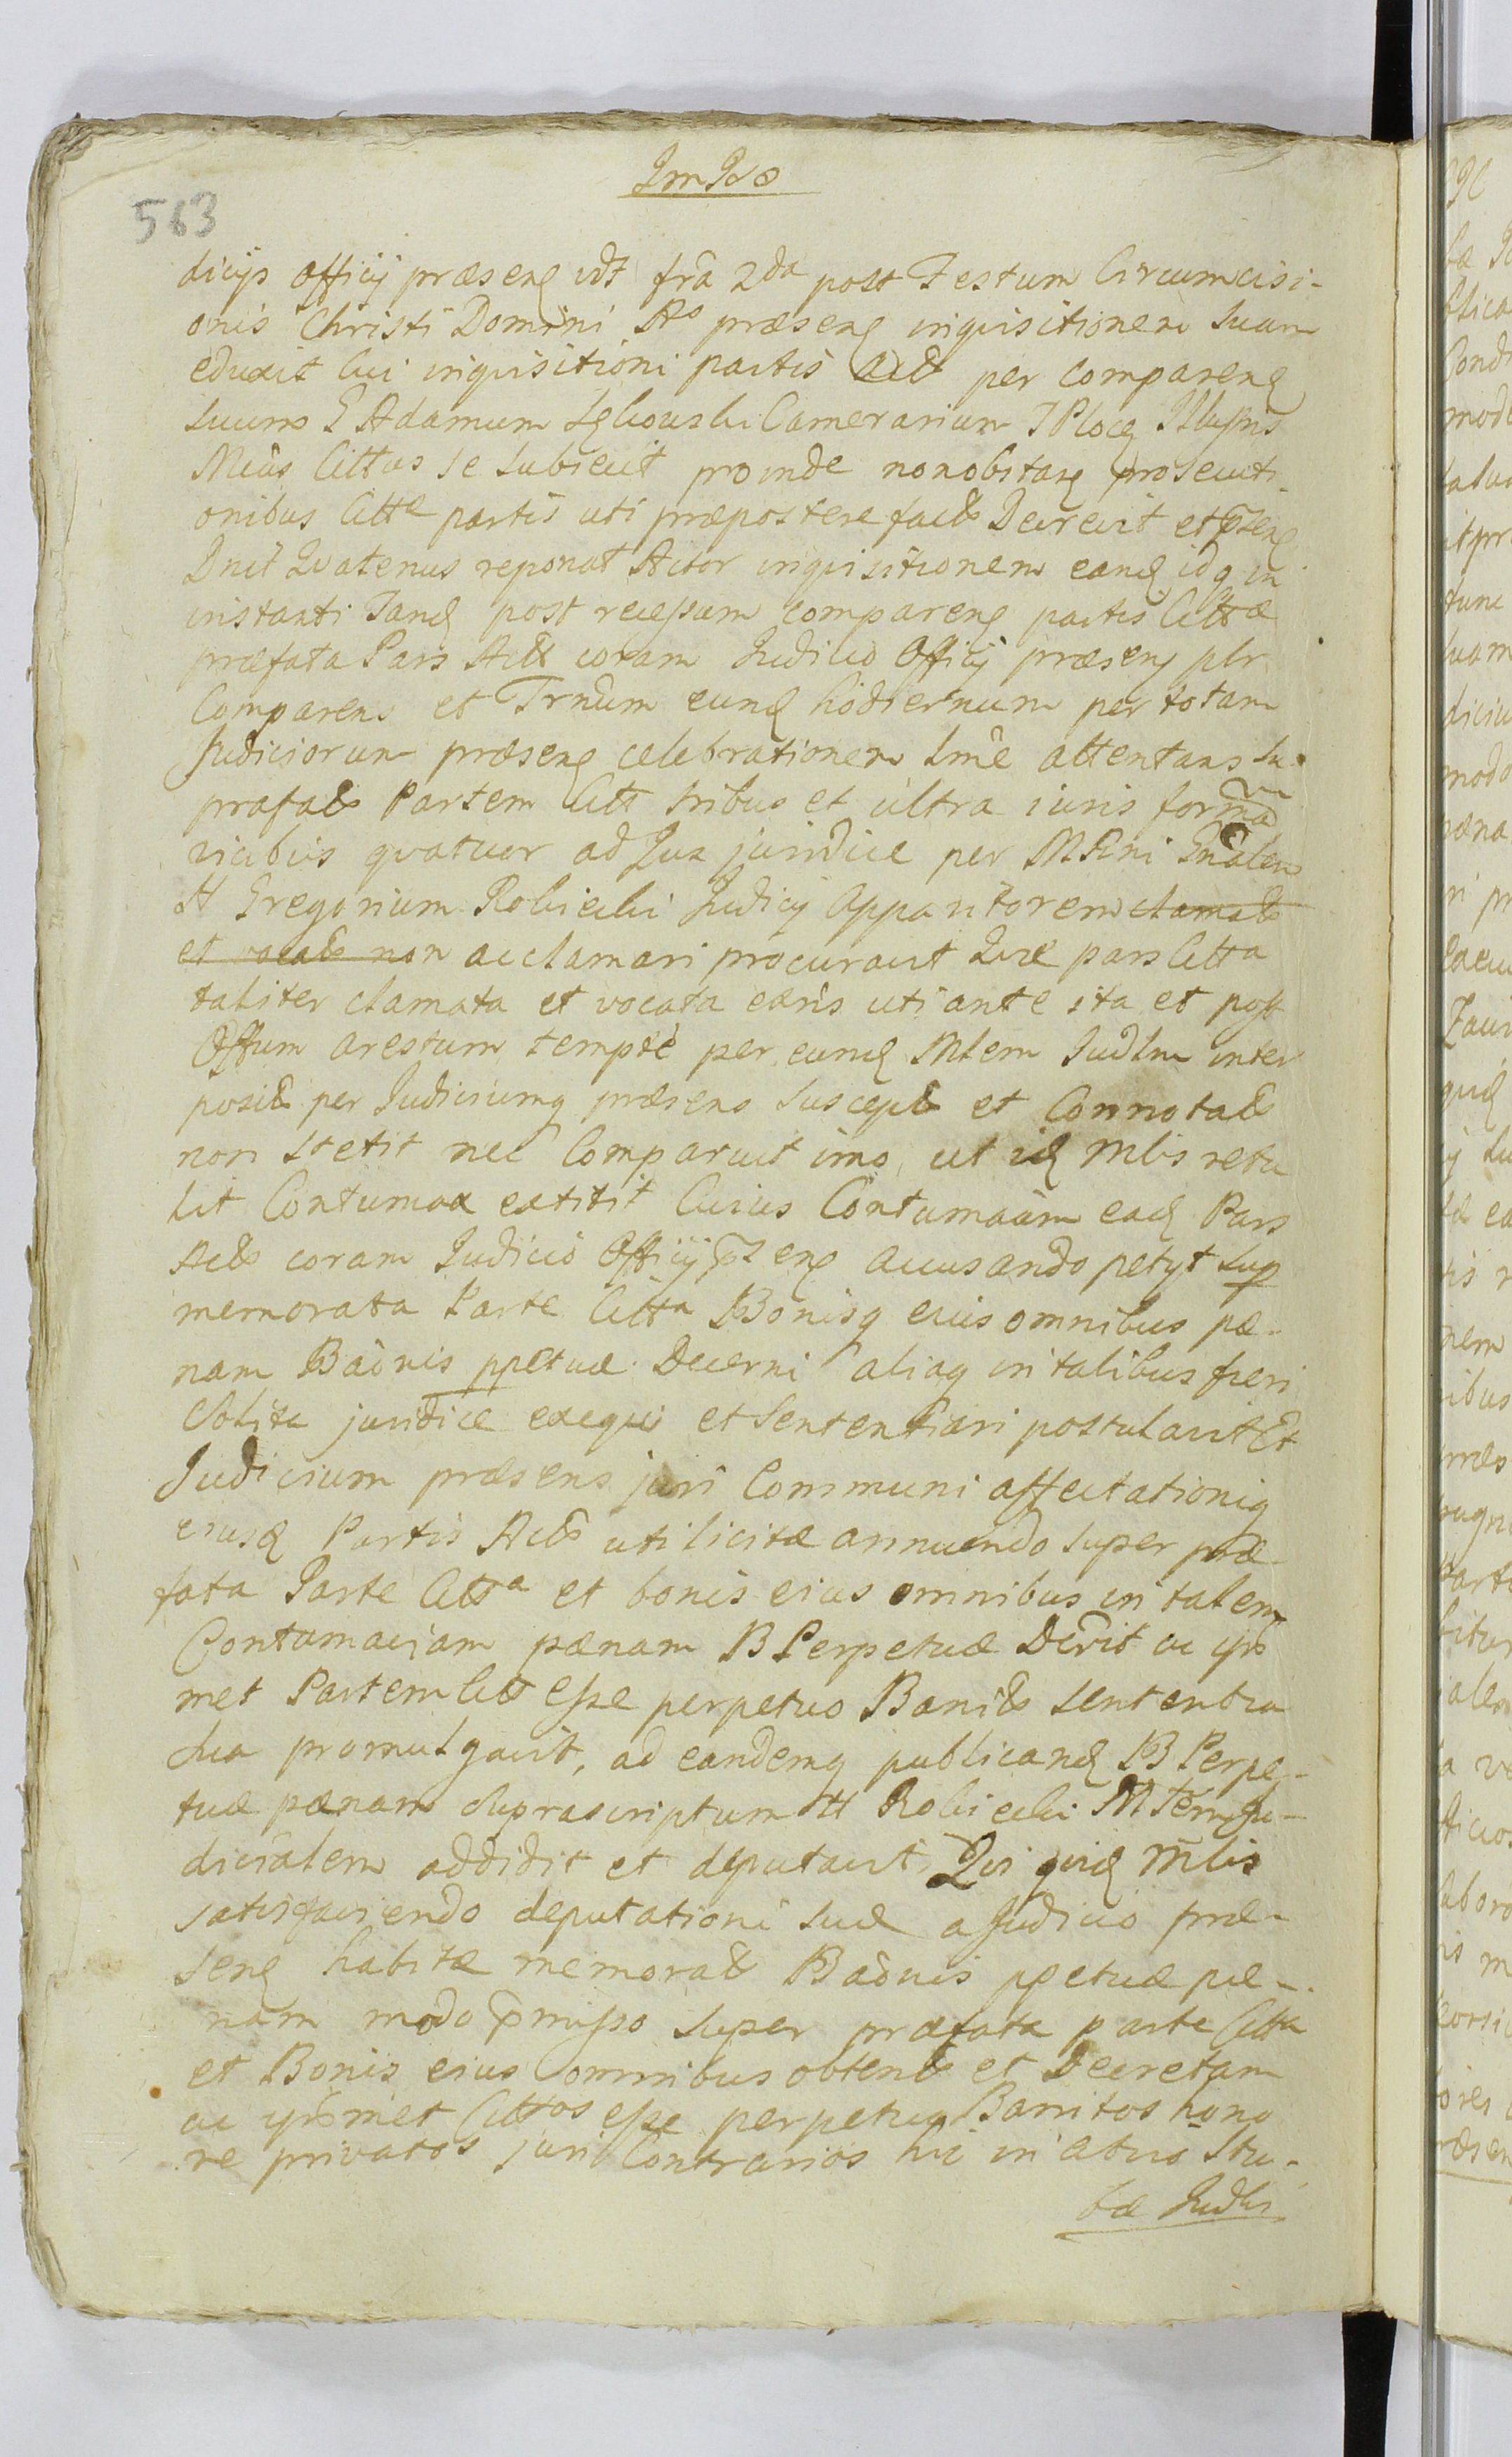 563
dicijs Officij præsens vdt fra 2da post Festum Circumcisi-
onis Christi Domini Ao præsens inquisitionem suam
eduxit Cui inquisitioni partis Act per comparens
suum G Adamum Camerarium T Plocens
Cittus se subiecit proinde nonobstans prosecuti-
onibus Cittæ partis uti præpostere fact Decrevit et præsens
Dnit Quatenus reponat Actor inquisitionem eand idq in
instanti Tand post recessum comparens partis Cittæ
præfata Pars Act coram Judicio Officij præsens plr
Comparens et Trnum eund hodiernum per totam
Judiciorum præsens celebrationem lme attentans su-
prafat Partem Citt tribus et ultra iuris forma
vicibus quatuor ad Jus juridice per MRni Gnalem
H Gregorium Robiecki Judicij Apparitorem clamat
et vocat non acclamari procuravit Quæ pars Citta
taliter clamata et vocata exns uti ante ita et post
Offum arestum tempte per eund Mlem Judlm inter
posit per Judiciumq præsens suscept et Connotat
non stetit nec Comparuit imo, ut id Mlis retu
lit Contumax extitit Cuius Contumaam ead Pars
Act coram Judicio Officij præsens accusando petyt sup
memorata Parte Citta Bonisq eius omnibus pæ-
nam Baonis ppetuæ Decerni aliaq in talibus fieri
solita juridice exequi et sententiari postulavit Et
Judicium præsens juri Communi affectationiq
eiusd Partis Act uti licitæ annuendo super præ-
fata Parte Citta et bonis eius omnibus in talem
Contumaciam pænam B Perpetuæ Dcrvit ac ips
met Partem Citt esse perpetuo Banit sententia
sua promulgavit, ad eandemq publicand B Perpe-
tuæ pænam suprascriptum H Robiecki M Tem Ju-
dicialem addidit et deputavit, Qui quid Mlis
satisfaciendo deputationi suæ a Judicio præ-
sens habitæ memorat Baonis ppetuæ pæ-
nam modo præmisso super præfata parte Citta
et Bonis eius omnibus obtent et Decretam
ac ipsmet Cittos esse perpetuo Banitos hono
re privatos juri Contrarios hic in atrio Stu-
bæ Judlis